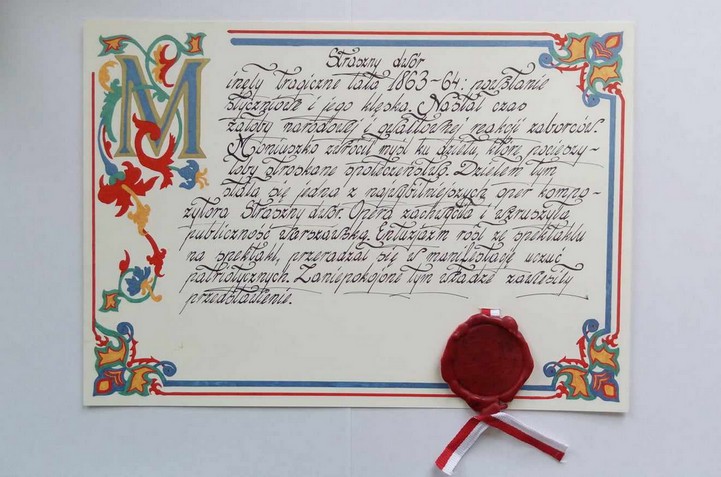 Straszny dwór
M inęły tragiczne lata 1863-64: powstanie
styczniowe i jego klęska. Nastał czas
żałoby narodowej i gwałtownej reakcji zaborców.
Moniuszko zwrócił myśl ku dziełu, które pocieszy-
łoby stroskane społeczeństwo. Dziełem tym
stała się jedna z najwybitniejszych oper kompo-
zytora Straszny dwór. Opera zachwyciła i wzruszyła
publiczność warszawską. Entuzjazm rósł ze spektaklu
na spektakl, przeradzał się w manifestację uczuć
patriotycznych. Zaniepokojone tym władze zawiesiły
przedstawienie.